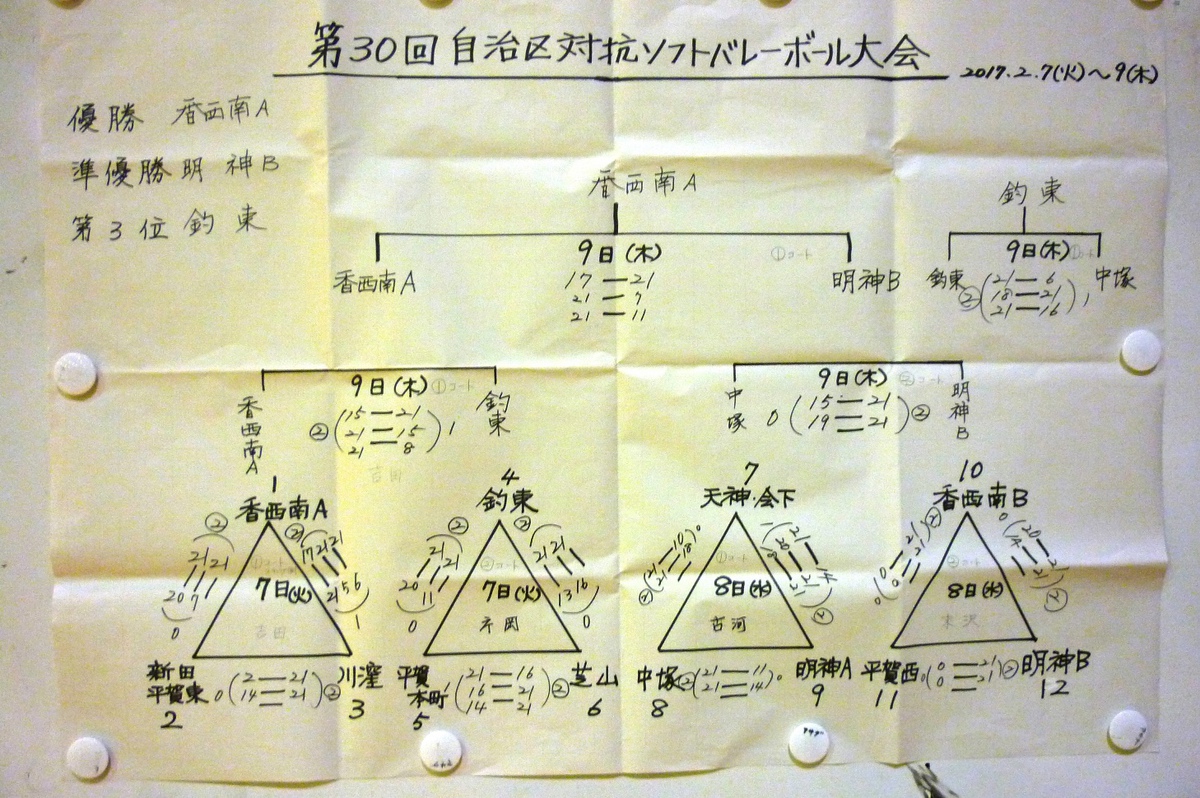 第30回 自治区対抗ソフトバレーボール大会
2017.2.7(火)～9(木)
優勝 香西南A
準優勝 明神B
第3位 釣東
香西南A
釣東
9日(木) ①コート
香西南A
17―21
21―7
21―11
明神B
9日(木) ①コート
釣東
② (21―6
18―21
21―16) 1
中塚
9日(木) ①コート
香西南A
② (15―21
21―15
21―8) 1
釣東
吉田
9日(木) ②コート
中塚
0 (15―21
19―21) ②
明神B
1
香西南A
7日(火)
吉田
新田
平賀東
2
0 (2―21
14―21) ②
川窪
3
4
釣東
②コート
7日(火)
片岡
平賀
本町
5
(21―16
16―21
14―21) ②
芝山
6
7
天神・会下
①コート
8日(水)
古河
中塚
8
② (21―11
21―14) 0
明神A
9
10
香西南B
②コート
8日(水)
末沢
平賀西
11
0 (0―21
0―21) ②
明神B
12